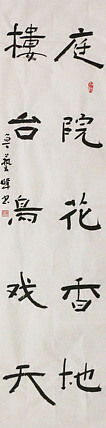 庭院花香地
樓台鳥戏天